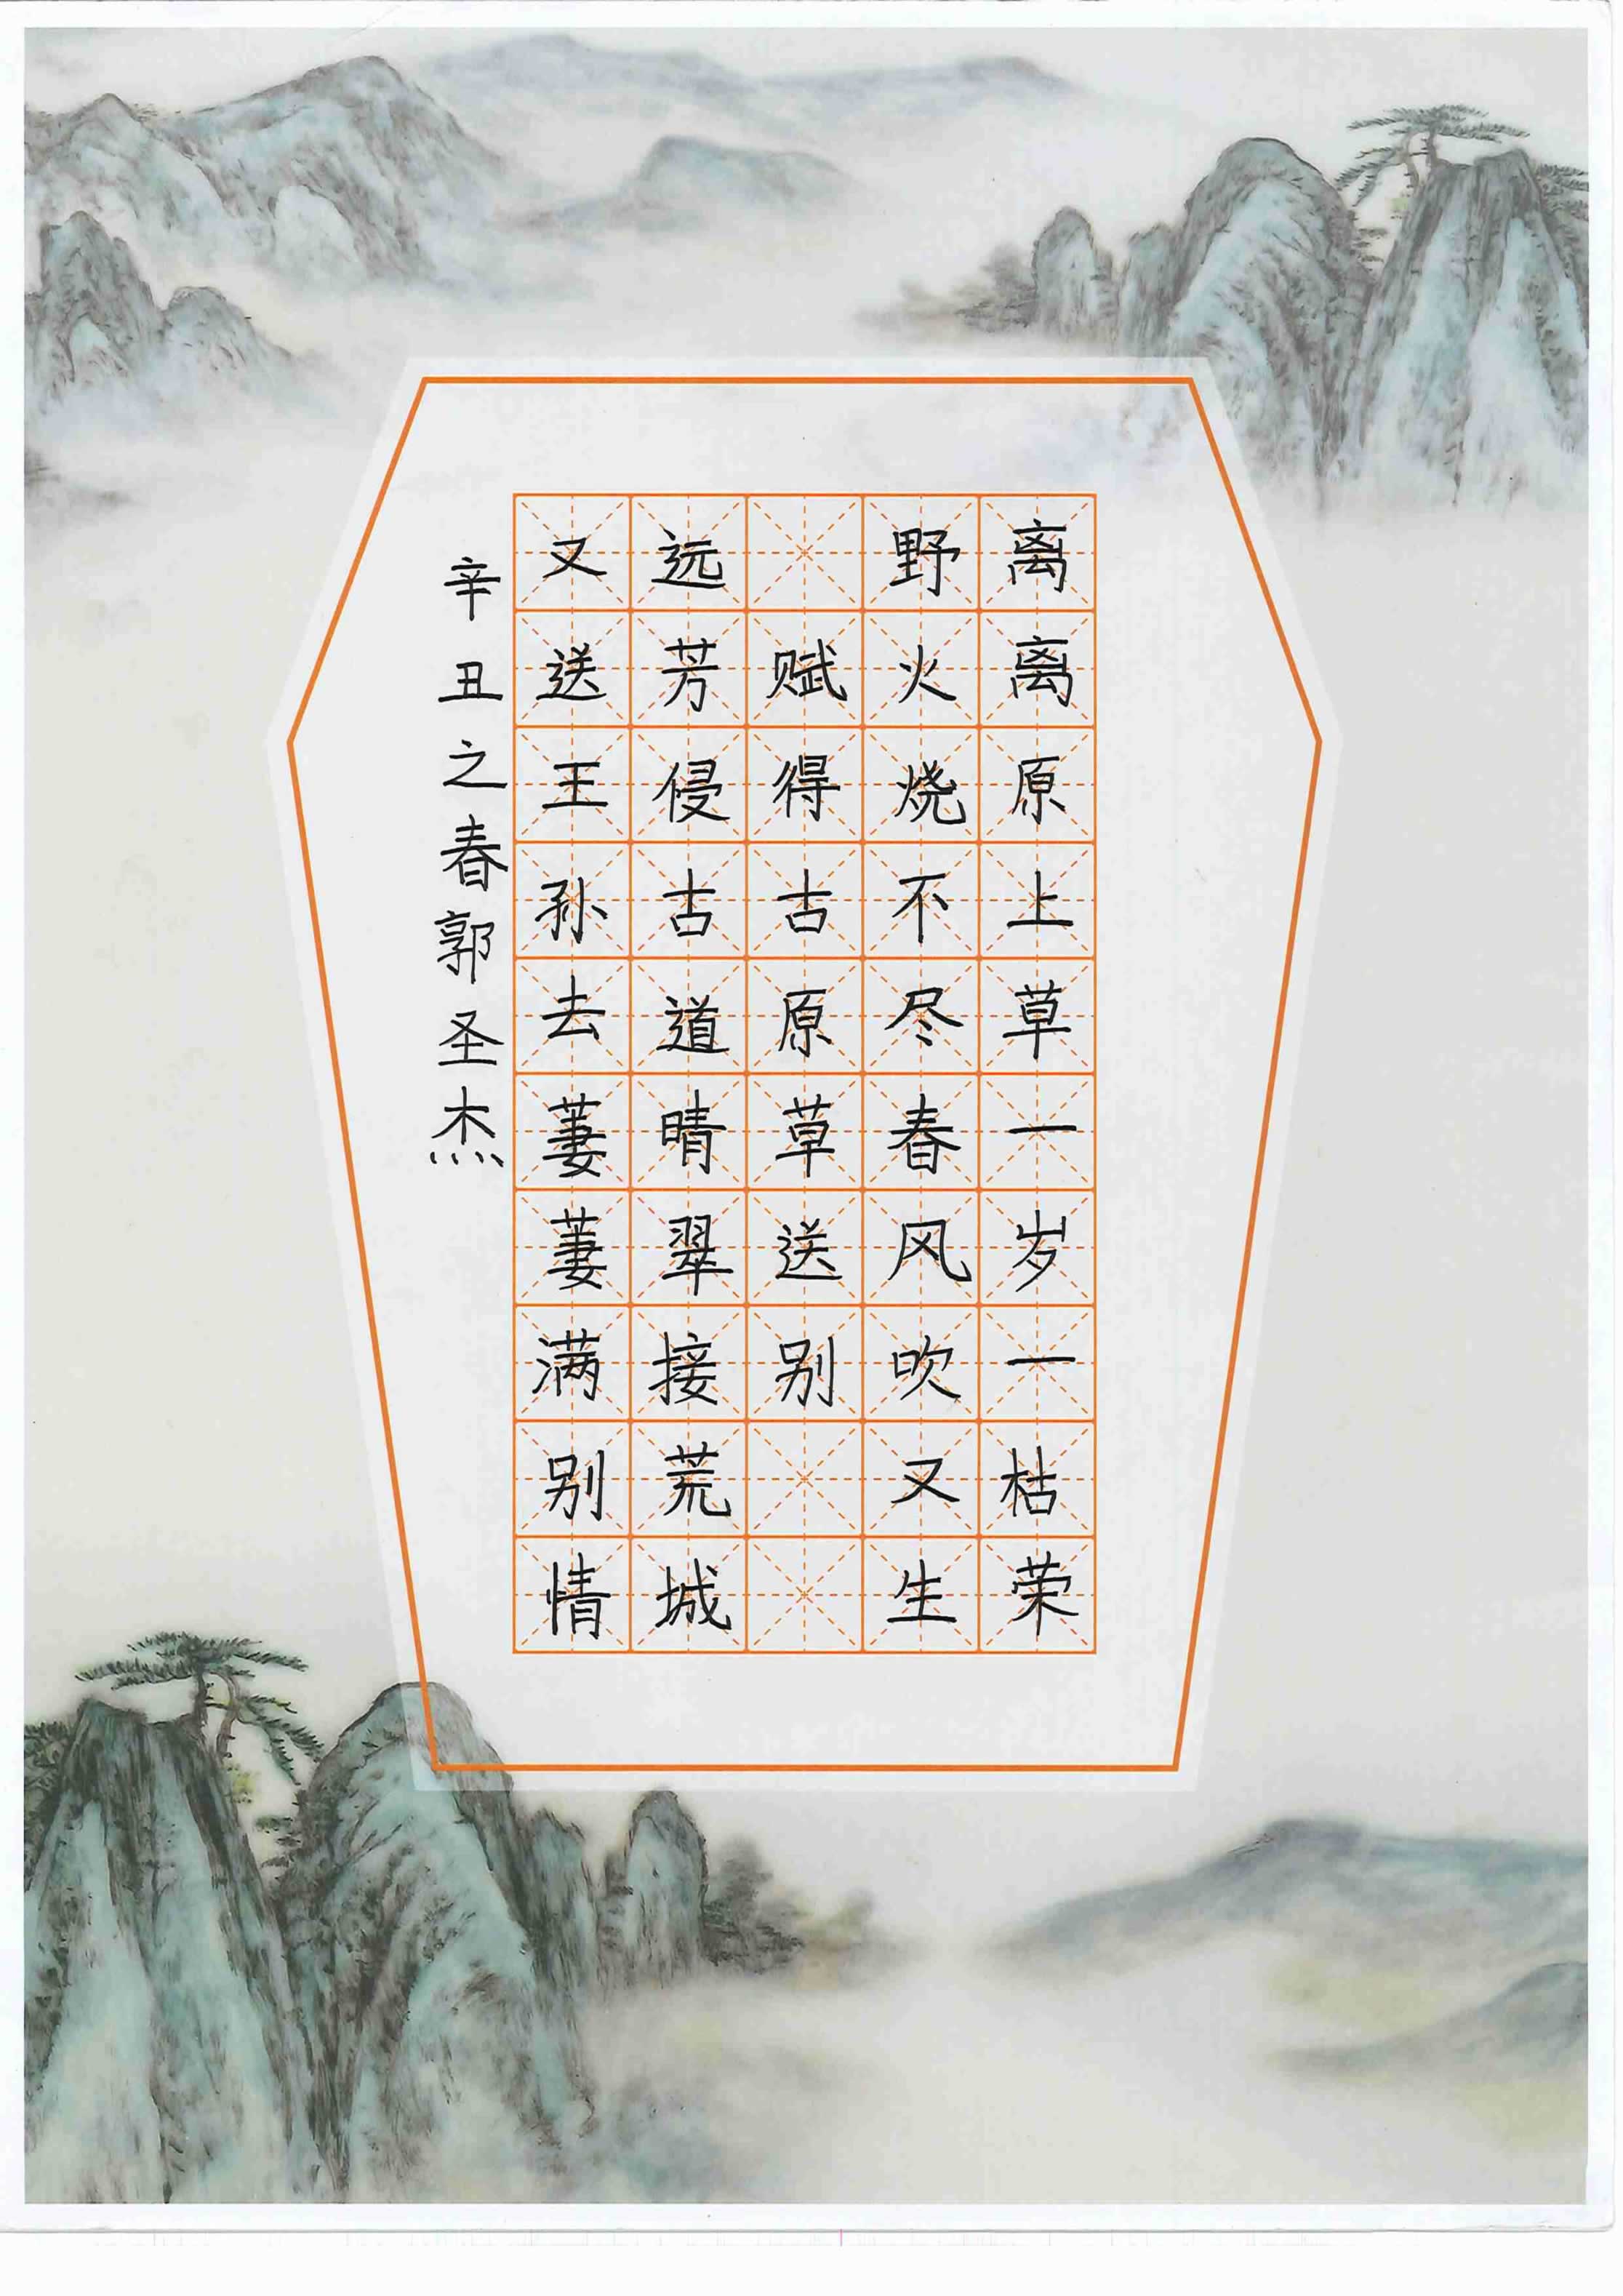 离离原上草一岁一枯荣
野火烧不尽春风吹又生
赋得古原草送别
远芳侵古道晴翠接荒城
又送王孙去萋萋满别情
辛丑之春郭圣杰